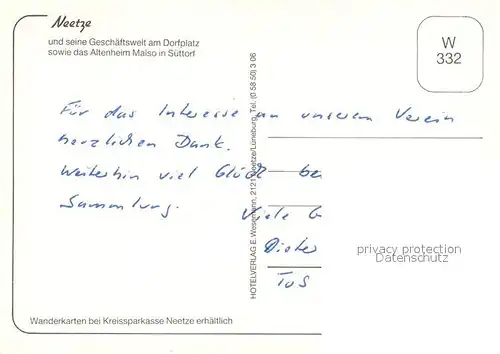 Neetze
und seine Geschäftswelt am Dorfplatz
sowie das Altenheim Malso in Süttorf
W
332
Für das Interesse an unserem Verein
herzlichen Dank.
Weiterhin viel Glück be
Sammlung.
Viele G
Dieter
TuS
HOTELVERLAG E. Wesemann, 2121 Neetze/Lüneburg, Tel. (0 58 50) 3 08
privacy protection
Datenschutz
Wanderkarten bei Kreissparkasse Neetze erhältlich